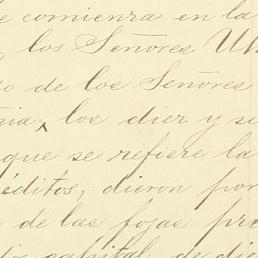 e comienza en la
, los Señores Uh
o de los Señores
nia, los diez y se
que se refiere la
éditos, dieron por
de las fojas pre
capital de die